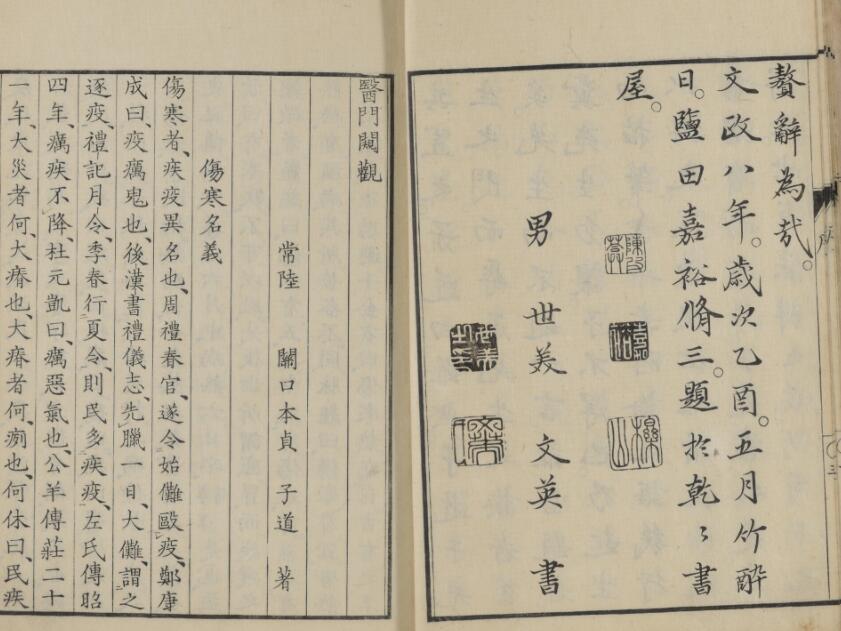 贅辭為哉。
文政八年。歳次乙酉。五月竹酔
日。鹽田嘉裕脩三。題於乾〻書
屋。
男 世美 文英 書
醫門闚觀
常陸 關口本貞 子道 著
傷寒名義
傷寒者、疾疫異名也、周禮春官、遂令始儺毆疫、鄭康
成曰、疫癘鬼也、後漢書禮儀志、先臘一日、大儺、謂之
逐疫、禮記月令、季春行夏令、則民多疾疫、左氏傳昭
四年、癘疾不降、杜元凱曰、癘惡氣也、公羊傳莊二十
一年、大災者何、大瘠也、大瘠者何、㾐也、何休曰、民疾